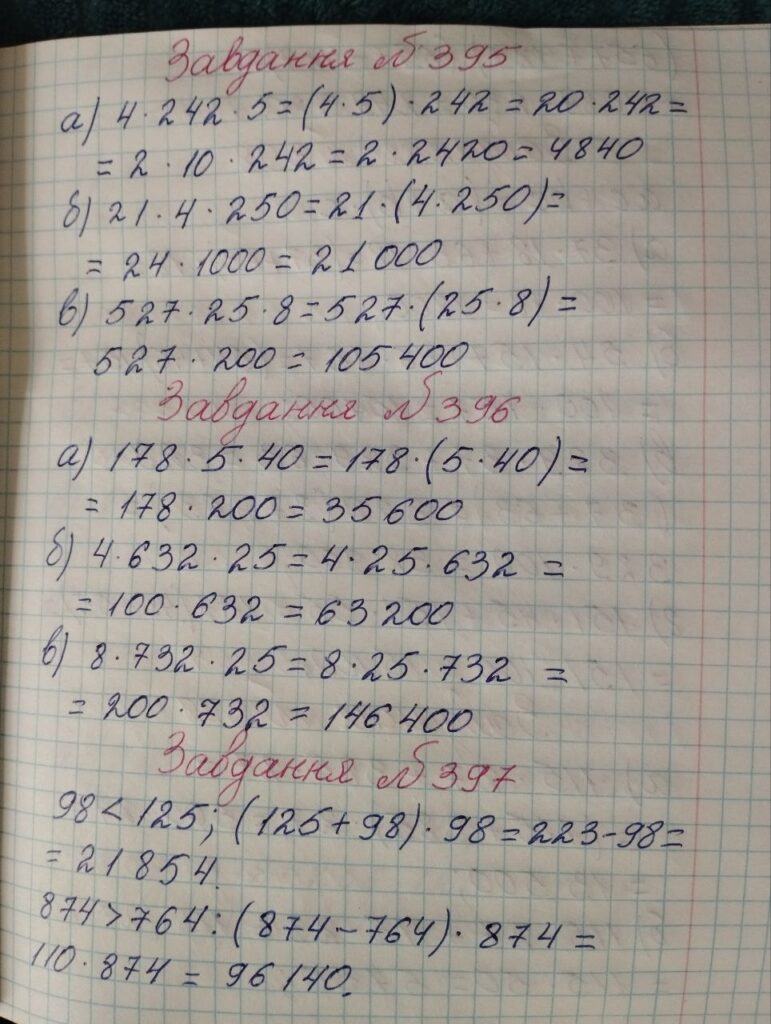 Завдання №395
а) 4·242·5=(4·5)·242=20·242=
=2·10·242=2·2420=4840
б) 21·4·250=21·(4·250)=
=24·1000=21000
в) 527·25·8=527·(25·8)=
527·200=105400
Завдання №396
а) 178·5·40=178·(5·40)=
=178·200=35600
б) 4·632·25=4·25·632=
=100·632=63200
в) 8·732·25=8·25·732=
=200·732=146400
Завдання №397
98<125; (125+98)·98=223-98=
=21854.
874>764: (874-764)·874=
110·874=96140.